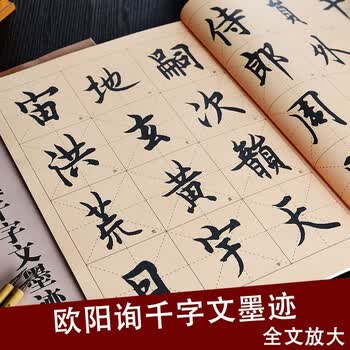 員外
侍郎周
嗣次韻天
地玄黄宇
宙洪荒日
千字文墨迹
欧阳询千字文墨迹
全文放大